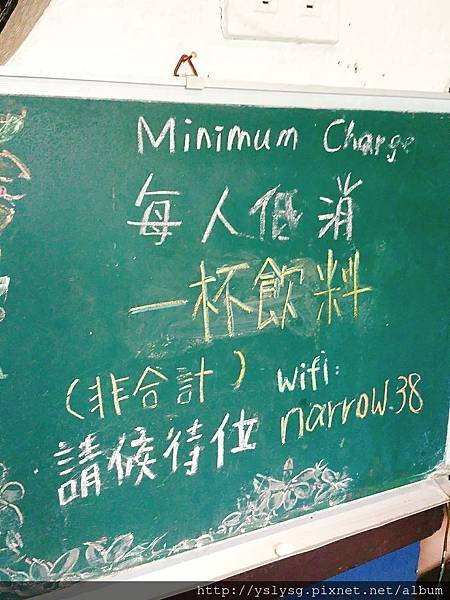 Minimum Charge
每人低消
一杯飲料
(非合計) wifi:
narrow.38
請候待位
http://yslysg.pixnet.net/album